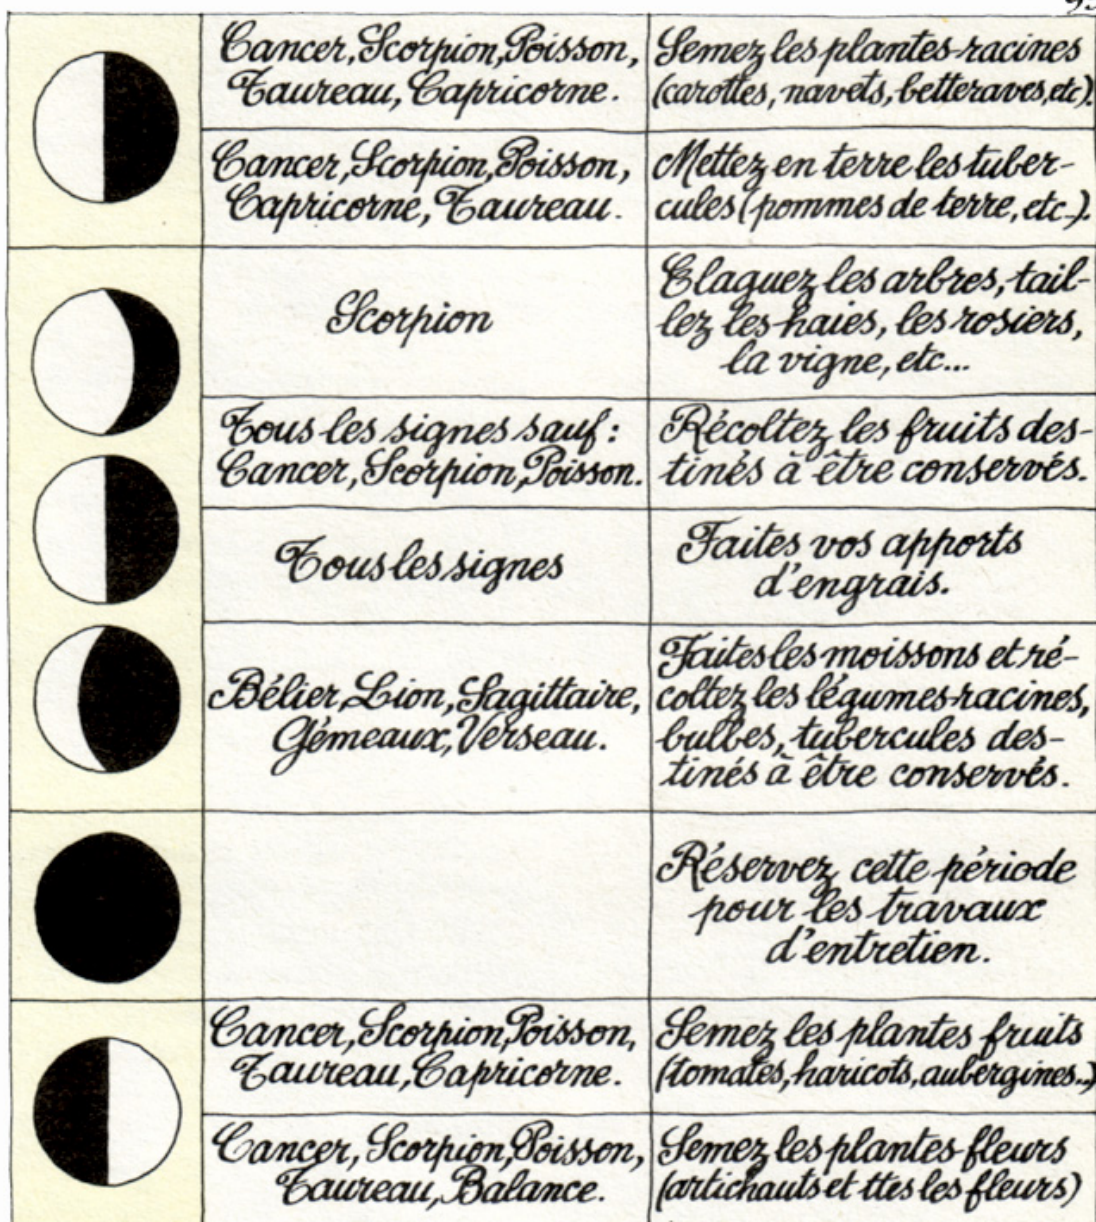 Cancer, Scorpion, Poisson,
Taureau, Capricorne.
Semez les plantes-racines
(carottes, navets, betteraves, etc).
Cancer, Scorpion, Poisson,
Capricorne, Taureau.
Mettez en terre les tuber-
cules (pommes de terre, etc-).
Scorpion
Elaguez les arbres, tail-
lez les haies, les rosiers,
la vigne, etc...
Tous les signes sauf :
Cancer, Scorpion, Poisson.
Récoltez les fruits des-
tinés à être conservés.
Tous les signes
Faites vos apports
d'engrais.
Bélier, Lion, Sagittaire,
Gémeaux, Verseau.
Faites les moissons et ré-
coltez les légumes-racines,
bulbes, tubercules des-
tinés à être conservés.
Réservez cette période
pour les travaux
d'entretien.
Cancer, Scorpion, Poisson,
Taureau, Capricorne.
Semez les plantes fruits
(tomates, haricots, aubergines..)
Cancer, Scorpion, Poisson,
Taureau, Balance.
Semez les plantes-fleurs
(artichauts et ttes les fleurs)